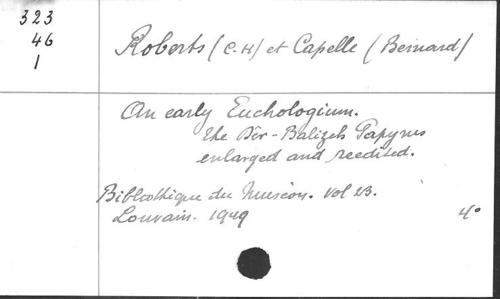 323
46
1
Roberts (C.H) et Capelle (Bernard)
An early Euchologium.
the Dêr-Balizeh Papyrus
enlarged and reedited.
Bibliothèque du Muséon. vol 23.
Louvain. 1949
4°